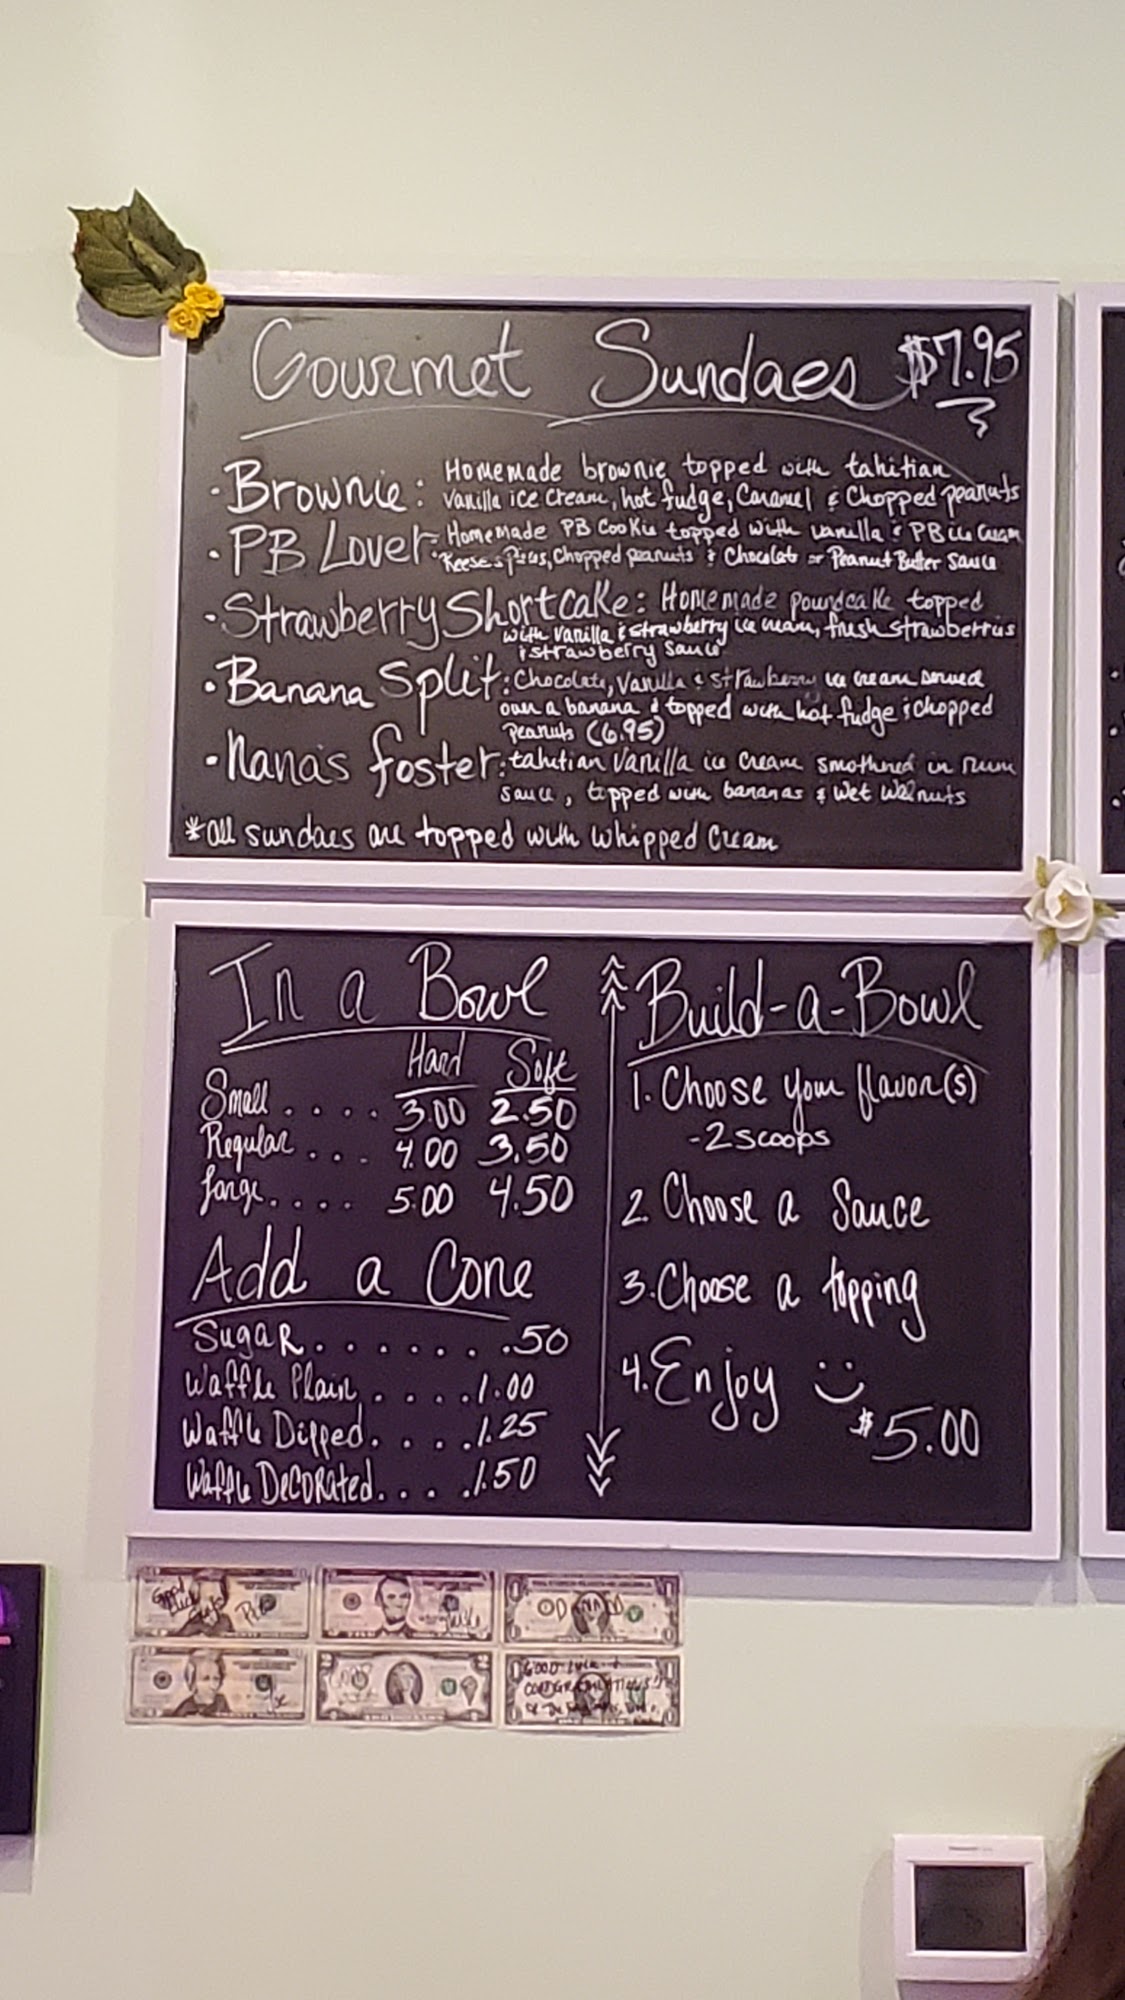 Gourmet Sundaes $7.95
• Brownie: Homemade brownie topped with tahitian
vanilla ice cream, hot fudge, Caramel & Chopped peanuts
• PB Lover: Homemade PB Cookie topped with vanilla & PB ice cream
Reeses Pieces, Chopped peanuts & Chocolate or Peanut Butter Sauce
• Strawberry Shortcake: Homemade poundcake topped
with vanilla & strawberry ice cream, fresh strawberries
& strawberry sauce
• Banana Split: Chocolate, Vanilla & strawberry ice cream served
over a banana & topped with hot fudge & chopped
peanuts (6.95)
• Nana's foster: tahitian vanilla ice cream smothered in rum
sauce, topped with bananas & wet walnuts
*all sundaes are topped with whipped cream
In a Bowl
Hard Soft
Small . . . . 3.00 2.50
Regular . . . 4.00 3.50
Large. . . . 5.00 4.50
Add a Cone
Sugar. . . . . . . .50
Waffle Plain . . . . 1.00
Waffle Dipped. . . . .1.25
Waffle Decorated. . . . .1.50
Build-a-Bowl
1. Choose your flavor(s)
-2 scoops
2. Choose a Sauce
3. Choose a topping
4. Enjoy :)
$5.00
Good
Luck
GOOD LUCK +
CONGRATULATIONS